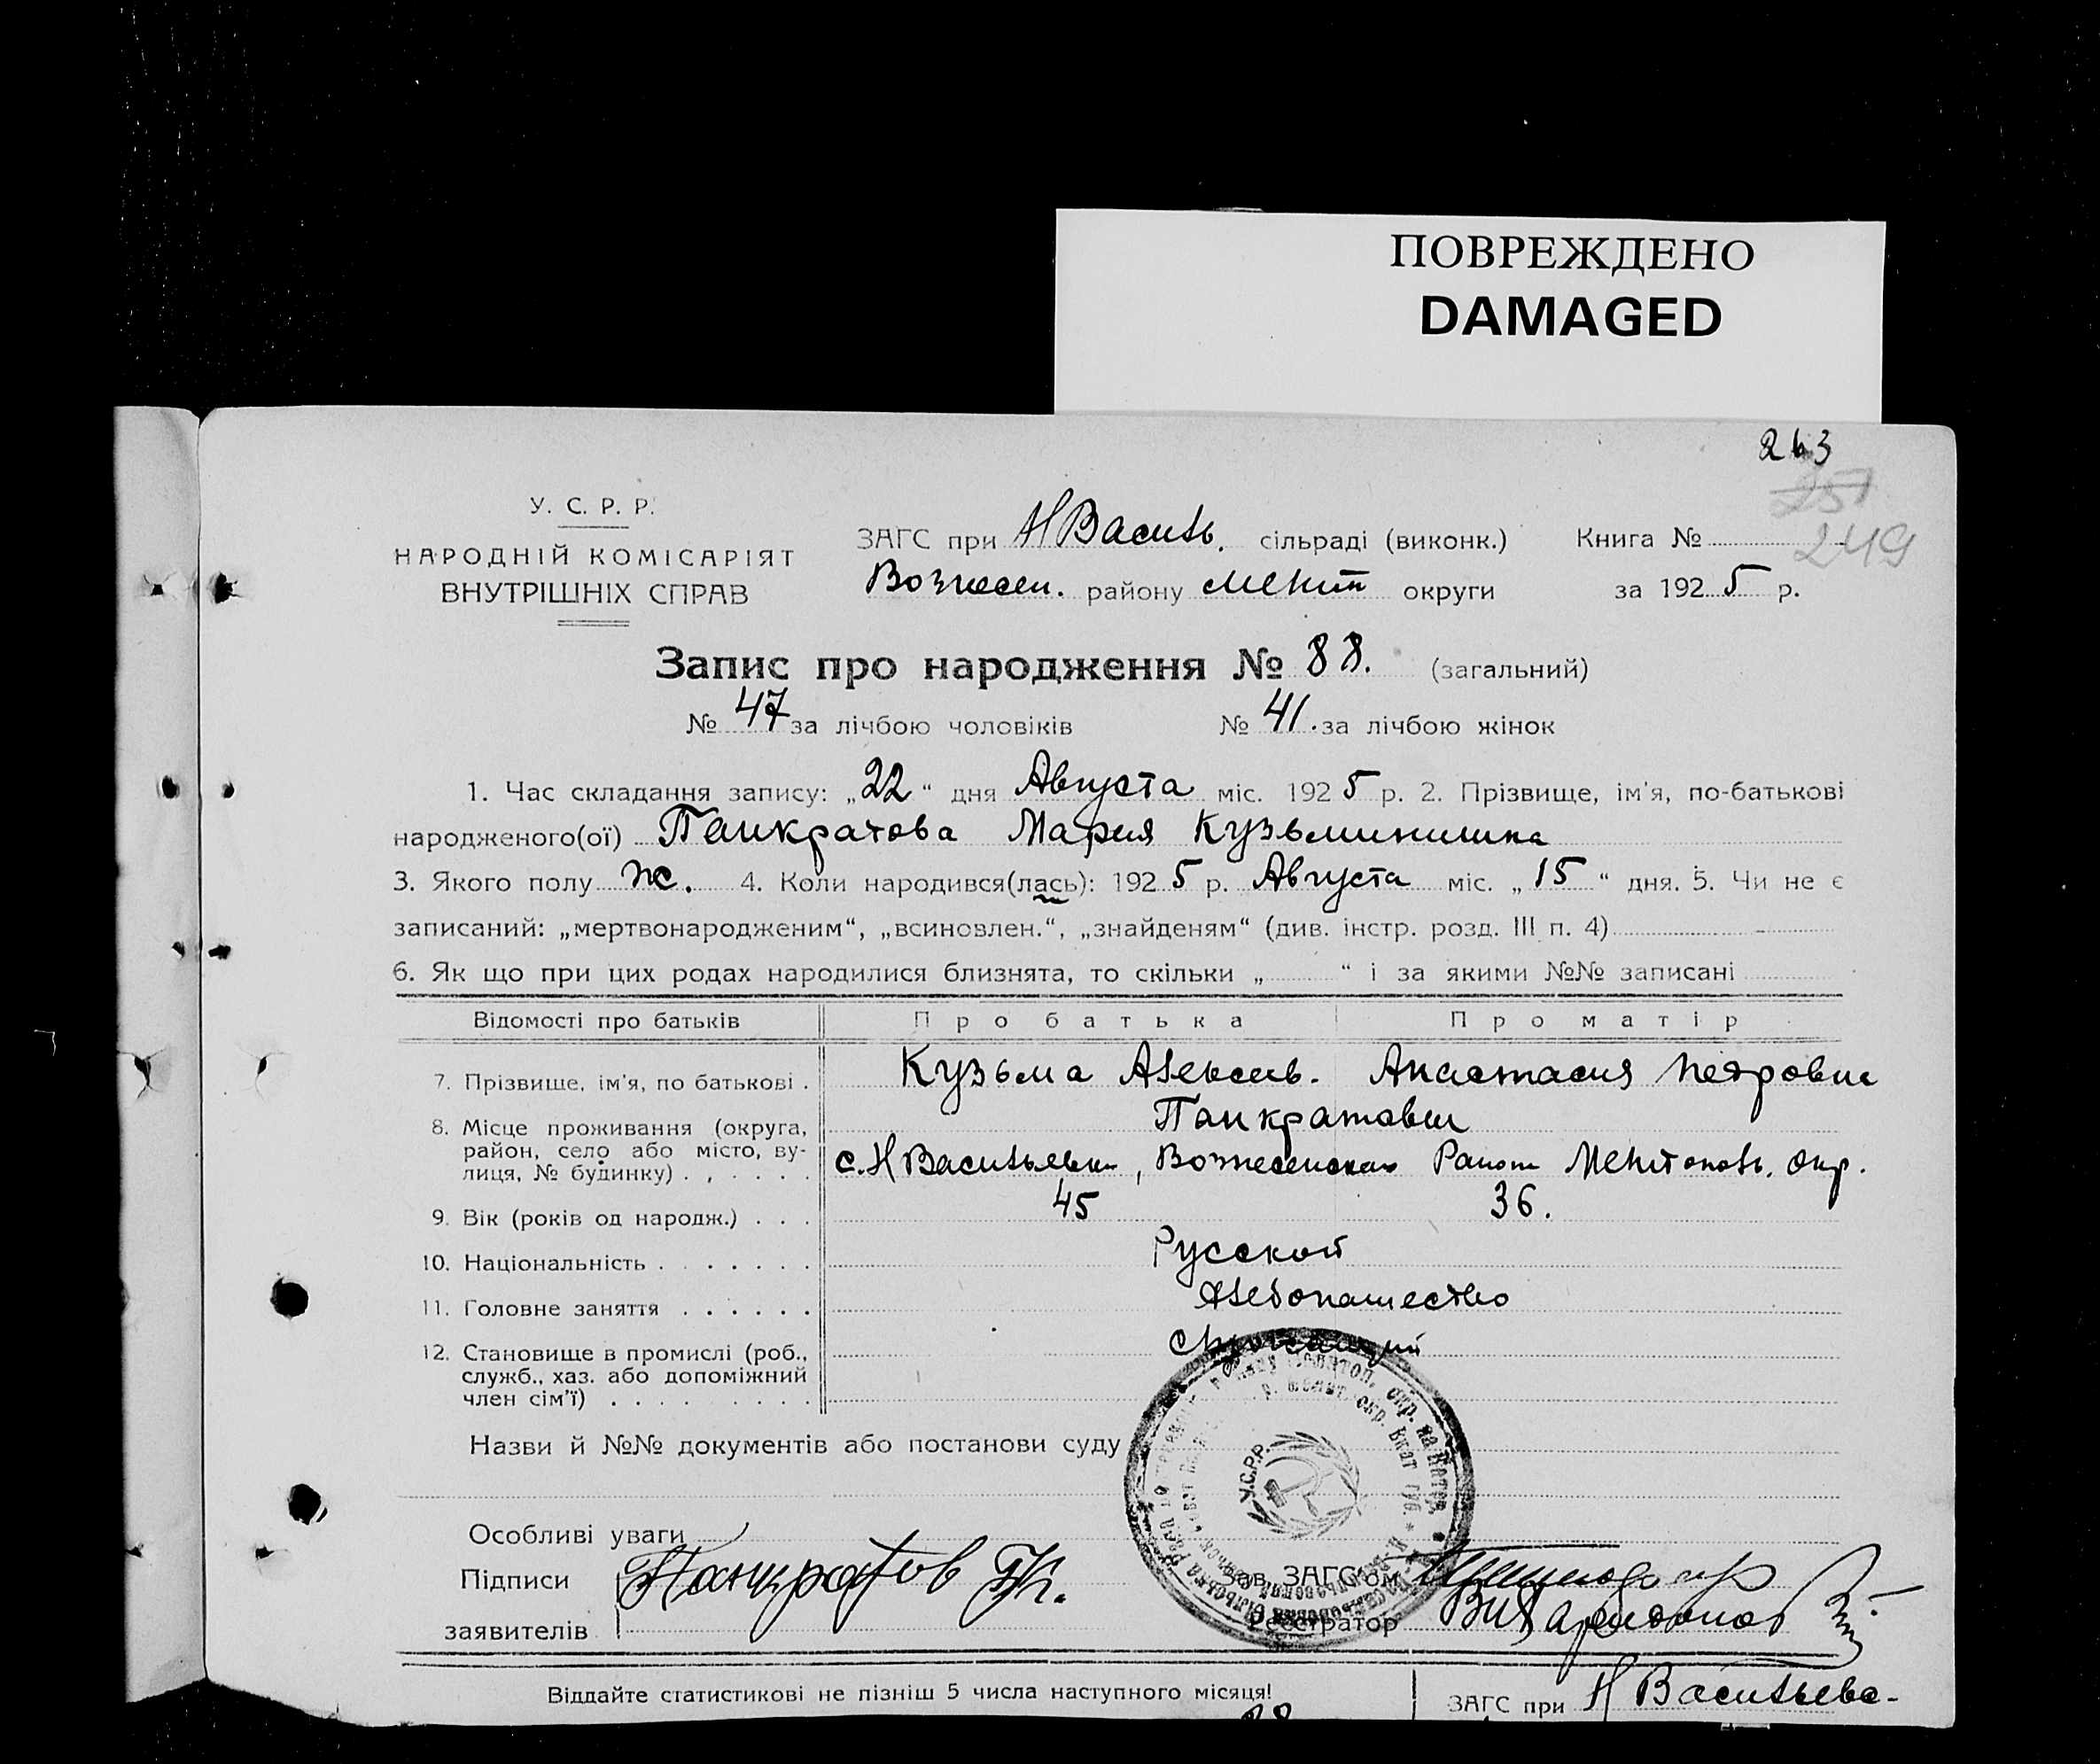 ПОВРЕЖДЕНО
DAMAGED
263
251
249
У. С. Р. Р.
НАРОДНІЙ КОМІСАРІЯТ
ВНУТРІШНІХ СПРАВ
ЗАГС при Н Василь. сільраді (виконк.) Книга №
Вознесен. району Мелит округи за 1925 р.
Запис про народження № 88. (загальний)
№ 47 за лічбою чоловіків № 41. за лічбою жінок
1. Час складання запису: „22“ дня Августа міс. 1925 р. 2. Прізвище, ім'я, по-батькові
народженого(ої) Панкратова Мария Кузьминишна
3. Якого полу ж. 4. Коли народився(лась): 1925 р. Августа міс. „15“ дня. 5. Чи не є
записаний: „мертвонародженим“, „всиновлен.“, „знайденям“ (див. інстр. розд. III п. 4)
6. Як що при цих родах народилися близнята, то скільки „ “ і за якими №№ записані
Відомості про батьків Про батька Про матір
7. Прізвище, ім'я, по батькові . Кузьма Алексеев. Анастасия Петровна
Панкратовы
8. Місце проживання (округа,
район, село або місто, ву-
лиця, № будинку) . , . . . . с. Н Васильевка, Вознесенская Район Мелитополь. окр.
9. Вік (років од народж.) . . . 45 36.
10. Національність . . . . . . . Русской
11. Головне заняття . . . . . . Хлебопашество
12. Становище в промислі (роб.,
служб., хаз. або допоміжний
член сім'ї) . . . . . . . .
Назви й №№ документів або постанови суду
У.С.Р.Р.
Особливі уваги
Підписи Панкратов
заявителів
Зав. ЗАГС'ом
Реєстратор
Віддайте статистикові не пізніш 5 числа наступного місяця!
ЗАГС при Н Васильева-